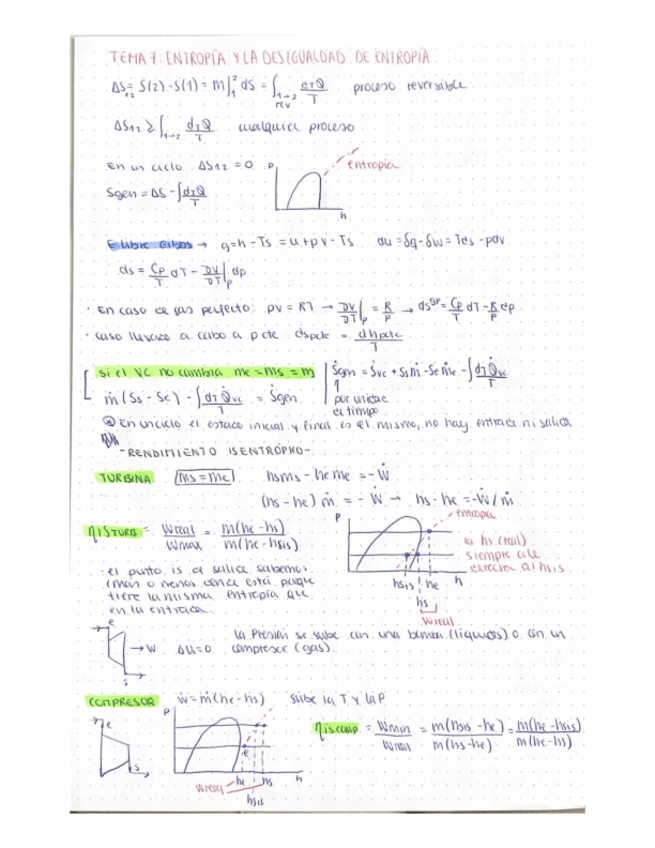 TEMA 7: ENTROPÍA Y LA DESIGUALDAD DE ENTROPÍA
ΔS₁₂ = S(2) - S(1) = m∫₁² ds = ∫₁→₂ rev đQ/T proceso reversible
ΔS₁₂ ≥ ∫₁→₂ đQ/T cualquier proceso
En un ciclo ΔS₁₂ = 0
Sgen = ΔS - ∫đQ/T
P
entropía
h
E libre Gibbs → g = h - Ts = u + pv - Ts du = δq - δw = Tds - pdv
ds = Cp/T dT - DV/DT|p dp
· En caso de gas perfecto: pv = RT → DV/DT|p = R/P → dsᴳᴾ = Cp/T dT - R/P dp
· Caso llevado a cabo a p cte dspcte = dhpcte/T
si el VC no cambia me = ms = m
ṁ(Ss - Se) - ∫đQ̇vc/T = Ṡgen
Ṡgen = Ṡvc + Ssṁs - Seṁe - ∫đQ̇vc/T
por unidad
de tiempo
En un ciclo el estado inicial y final es el mismo, no hay entrada ni salida
- RENDIMIENTO ISENTRÓPICO -
TURBINA ms = me hsms - heme = -Ẇ
(hs - he)ṁ = -Ẇ → hs - he = -Ẇ/ṁ
ηISTURB = Wreal/Wmax = m(he - hs)/m(he - hsis)
P
entropía
la hs (real)
siempre a la
derecha al hsis
hsis he h
hs
Wreal
el punto is a la salida sabemos
(más o menos donde está porque
tiene la misma entropía que
en la entrada.
e
→ W ΔU = 0
s
la Presión se sube con una bomba (líquidos) o con un
compresor (gas).
COMPRESOR Ẇ = ṁ(he - hs) sube la T y la P
e
s
P
e
he hs h
Wreal
hsis
ηis.comp = Wmin/Wreal = m(hsis - he)/m(hs - he) = m(he - hsis)/m(he - hs)